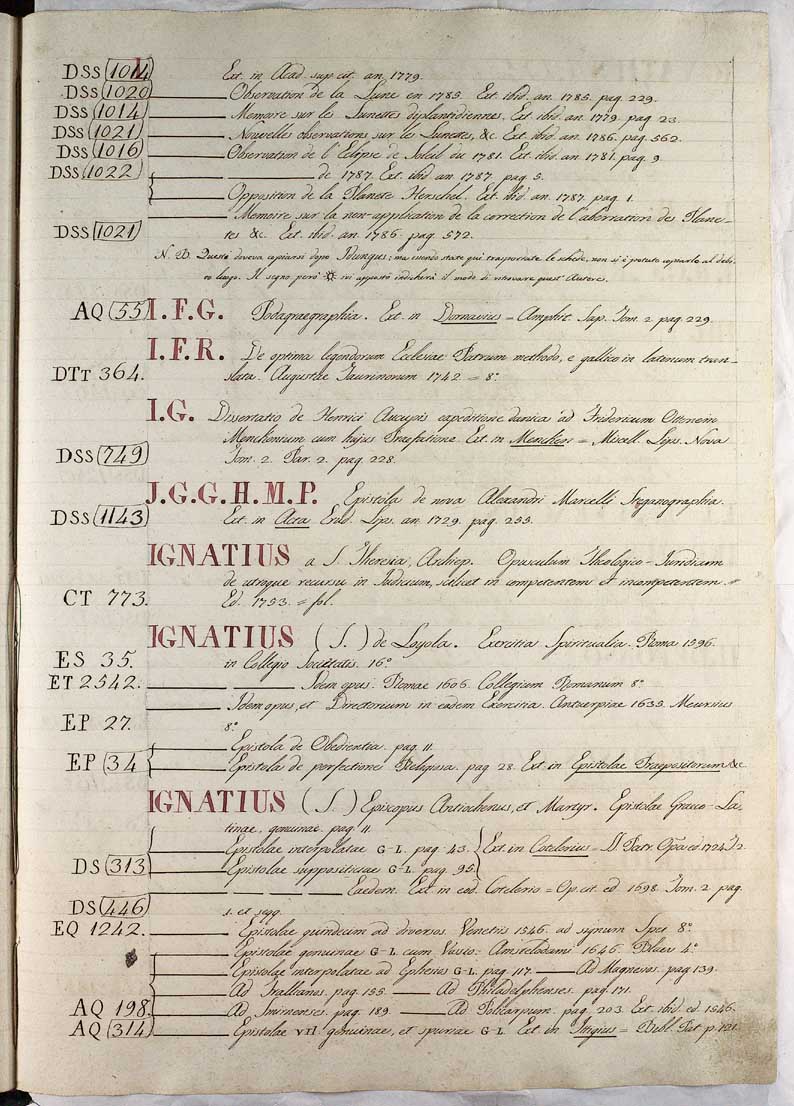 DSS 1014 Ext. in Acad. sup. cit. an. 1779.
DSS 1020 Observation de la Lune en 1785. Ext. ibid. an. 1785. pag. 229.
DSS 1014 Memoire sur les Lunettes diplantidiennes. Ext. ibid. an. 1779. pag. 23.
DSS 1021 Nouvelles observations sur les Lunettes, &c. Ext. ibid. an. 1786. pag. 562.
DSS 1016 Observation de l'Eclipse de Soleil du 1781. Ext. ibid. an. 1781. pag. 9.
DSS 1022 de 1787. Ext. ibid. an. 1787. pag. 5.
Opposition de la Planete Herschel. Ext. ibid. an. 1787. pag. 1.
Memoire sur la non-application de la correction de l'aberration des Plane-
DSS 1021 tes &c. Ext. ibid. an. 1786. pag. 572.
N. B. Questo doveva copiarsi dopo ; ma essendo state qui trasportate le schede, non si è potuto copiarle al debi-
to luogo. Il segno però ivi apposto indicherà il modo di ritrovare quest'Autore.
AQ 55 I.F.G. Podagraegraphia. Ext. in Dornavius = Amphit. Sap. Tom. 2. pag. 229.
I.F.R. De optima legendorum Ecclesiae Patrum methodo, e gallico in latinum tran-
DTt 364. slata. Augustae Taurinorum 1742 = 8.°
I.G. Dissertatio de Henrici Aucupis expeditione danica ad Fridericum Ottonem
Menckenium cum hujus Praefatione. Ext. in Mencken = Miscell. Lips. Nova
DSS 749 Tom. 2. Par. 2. pag. 228.
J.G.G.H.M.P. Epistola de nova Alexandri Marcelli Steganographia.
DSS 1143 Ext. in Acta Erud. Lips. an. 1729. pag. 233.
IGNATIUS a S. Theresia, Archiep. Opusculum Theologico-Juridicum
de utroque recursu in Judicium, scilicet in competentem et incompetentem. =
CT 773. Ed. 1753. = fol.
IGNATIUS (S.) de Loyola. Exercitia Spiritualia. Roma 1596.
ES 35. in Collegio Societatis. 16.°
ET 2542. Idem opus. Romae 1606. Collegium Romanum 8.°
Idem opus, et Directorium in eadem Exercitia. Antuerpiae 1635. Meursius
EP 27. 8.°
Epistola de Obedientia. pag. 11.
EP 34 Epistola de perfectione Religiosa. pag. 28. Ext. in Epistolae Praepositorum &c
IGNATIUS (S.) Episcopus Antiochenus, et Martyr. Epistolae Graeco-La-
tinae, genuinae. pag. 11.
Epistolae interpolatae G-L. pag. 43. Ext. in Cotelerius = SS Patr. Opera ed 1724 T. 2.
DS 313 Epistolae supposititiae G-L. pag. 95.
Eaedem. Ext. in eod. Cotelerio = Op. cit. ed. 1698. Tom. 2. pag.
DS 446 1. et seqq.
EQ 1242. Epistolae quindecim ad diversos. Venetiis 1546. ad signum Spei 8.°
Epistolae genuinae G-L. cum Amstelodami 1646. Blaeu 4.°
Epistolae interpolatae ad Ephesios G-L. pag. 117. Ad Magnesios. pag. 139.
Ad Trallianos. pag. 155. Ad Philadelphenses. pag. 171.
AQ 198. Ad Smirnenses. pag. 189. Ad Policarpum. pag. 203. Ext. ibid. ed. 1546.
AQ 314 Epistolae VII. genuinae, et spuriae G-L. Ext. in = Bibl. Pat. p. 121.